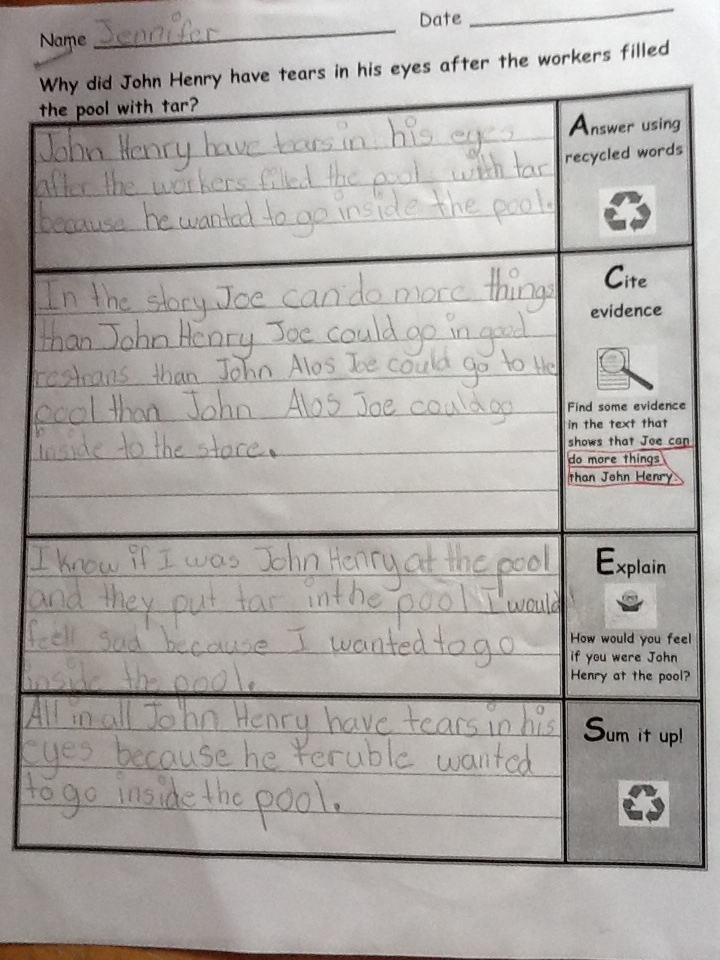 Name Jennifer Date
Why did John Henry have tears in his eyes after the workers filled
the pool with tar?
John Henry have tears in his eyes
after the workers filled the pool with tar
because he wanted to go inside the pool.
Answer using
recycled words
In the story Joe can do more things
than John Henry Joe could go in good
restrans than John Alos Joe could go to the
pool than John Alos Joe could go
inside to the store.
Cite
evidence
Find some evidence
in the text that
shows that Joe can
do more things
than John Henry.
I know if I was John Henry at the pool
and they put tar in the pool I would
feell sad because I wanted to go
inside the pool.
Explain
How would you feel
if you were John
Henry at the pool?
All in all John Henry have tears in his
eyes because he teruble wanted
to go inside the pool.
Sum it up!